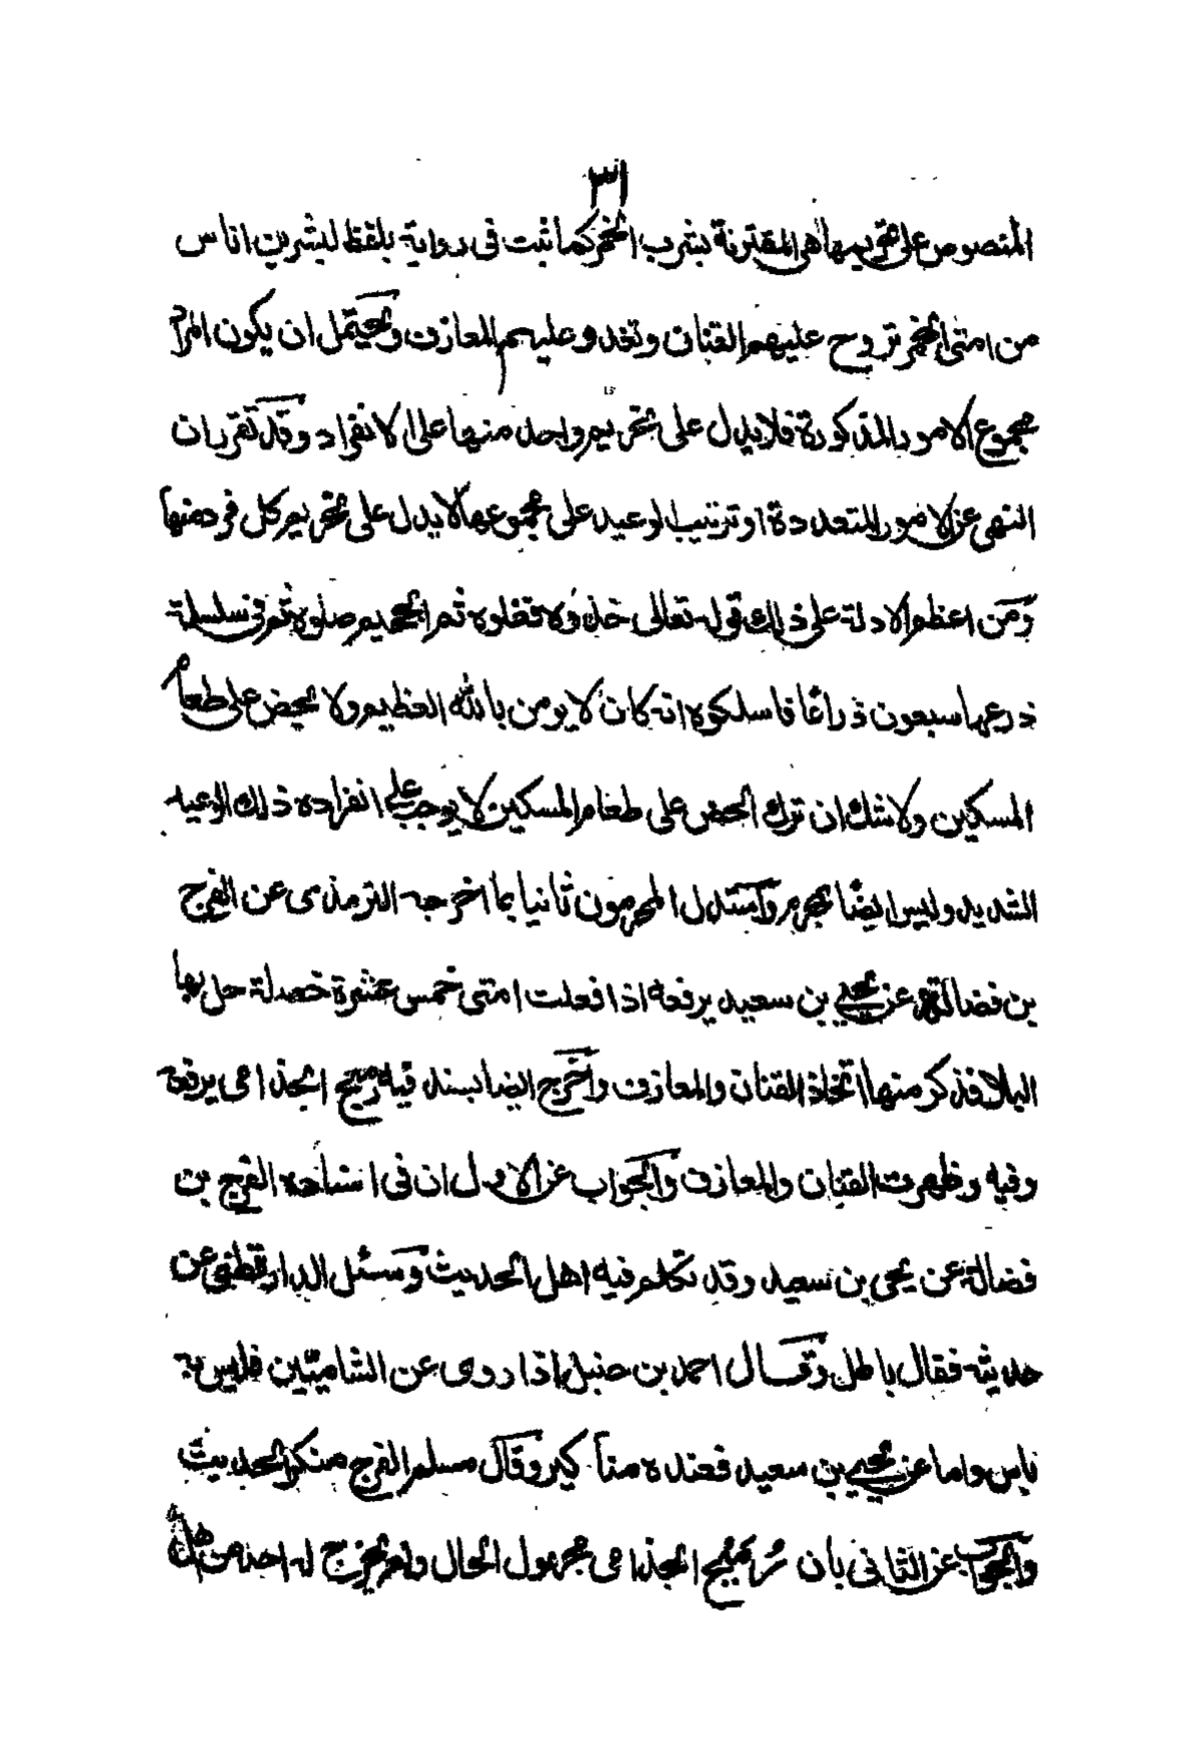 ٣١
المنصوص على تحريمها هي المقترنة بشرب الخمر كما ثبت في رواية بلفظ ليشربن اناس
من امتي الخمر تروح عليهم القنان وتغدو عليهم المعازف ويحتمل ان يكون المراد
مجموع الامور المذكورة فلا يدل على تحريم واحد منها على الانفراد وقد تقرر ان
النهي عن الامور المتعددة او ترتيب الوعيد على مجموعها لا يدل على تحريم كل فرد منها
ومن اعظم الادلة على ذلك قوله تعالى خذوه فغلوه ثم الجحيم صلوه ثم في سلسلة
ذرعها سبعون ذراعًا فاسلكوه انه كان لا يومن بالله العظيم ولا يحض على طعام
المسكين ولا شك ان ترك الحض على طعام المسكين لا يوجب على انفراده ذلك الوعيد
الشديد وليس ايضًا بمحرم واستدل المحرمون ثانيا بما اخرجه الترمذى عن الفرج
بن فضالة عن يحيى بن سعيد يرفعه اذا فعلت امتى خمس عشرة خصلة حل بها
البلا فذكر منها اتخاذ القنان والمعازف واخرج ايضا بسند فيه رميح الجذامى يرفعه
وفيه وظهرت القنان والمعازف والجواب عن الاول ان فى اسناده الفرج بن
فضالة عن يحيى بن سعيد وقد تكلم فيه اهل الحديث وسئل الدارقطنى عن
حديثه فقال باطل وقال احمد بن حنبل اذا روى عن الشاميّين فليس به
باس واما عن يحيى بن سعيد فعنده مناكير وقال مسلم الفرج منكر الحديث
والجواب عن الثانى بان رُميح الجذامى مجهول الحال ولم يخرج له احد من اهل